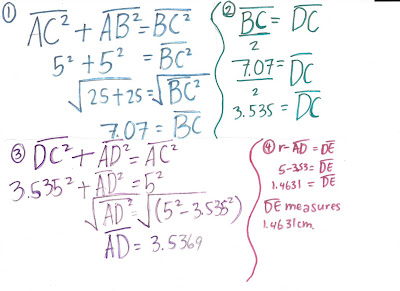 ① AC² + AB² = BC²
5² + 5² = BC²
√25+25 = √BC²
7.07 = BC
② BC/2 = DC
7.07/2 = DC
3.535 = DC
③ DC² + AD² = AC²
3.535² + AD² = 5²
√AD² = √(5² - 3.535²)
AD = 3.5369
④ r - AD = DE
5 - 3.53 = DE
1.4631 = DE
DE measures
1.4631cm.